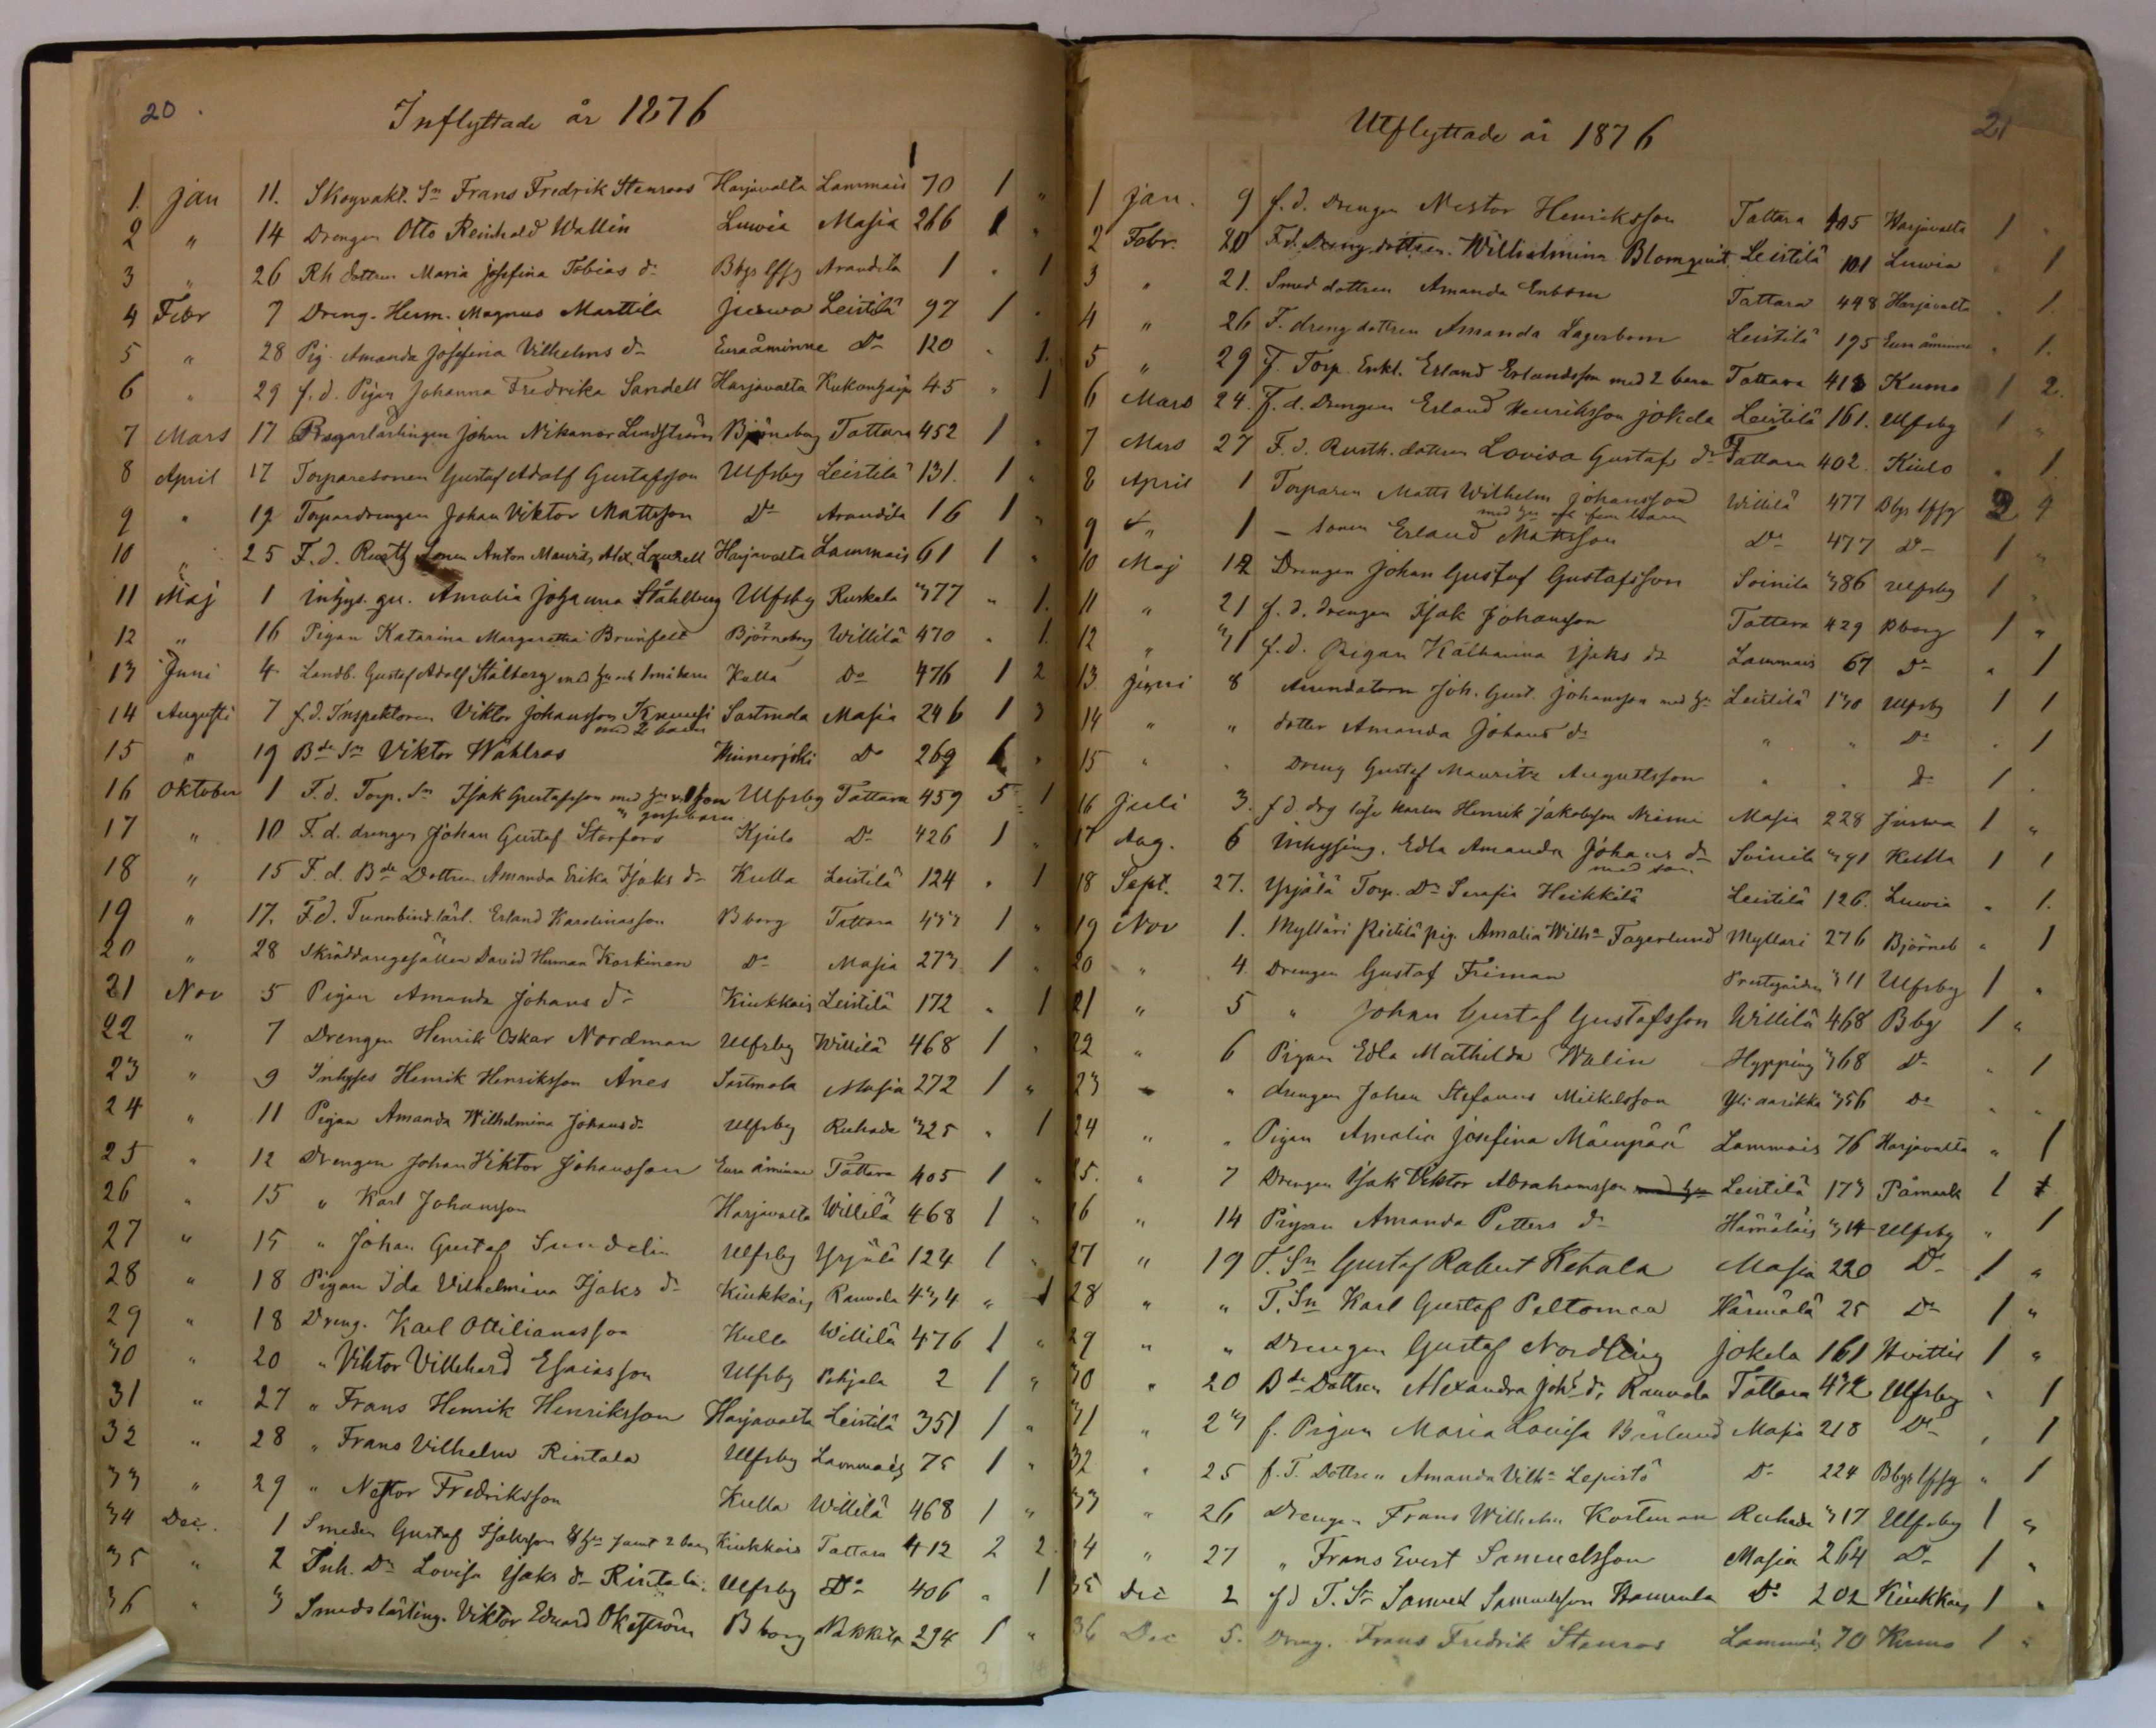 20.
Inflyttade år 1876
1
1. jan 11. Skogvakt. Sn Frans Fredrik Stenroos Harjavalta Lammais 70 1 "
2 " 14 Drengen Otto Reinhold Wallin Luvia Masia 266 1 "
3 " 26 Rh dottren Maria Josefina Tobias dr Bbgs lfsg Arandila 1 " 1
4 Febr 7 Dreng. Herm. Magnus Marttila Leistilä 97 1 "
5 " 28 Pig. Amanda Josefina Vilhelms dr Euraåminne Do 120 " 1.
6 " 29 f. d. Pigan Johanna Fredrika Sandell Harjavalta 45 " 1
7 Mars 17 Johan Nikanor Lindström Björneborg Tattara 452 1 "
8 April 17 Torparesonen Gustaf Adolf Gustafsson Ulfsby Leistilä 131. 1 "
9 " 19 Torpardrengen Johan Viktor Mattsson Do Arandila 16 1 "
10 " 25 F. d. Rusth sonen Anton Maurits Alex. Laurell Harjavalta Lammais 61 1 "
11 Maj 1 inhys. qu. Amalia Johanna Ståhlberg Ulfsby Ruskala 377 " 1.
12 " 16 Pigan Katarina Margaretha Brunfelt Björneborg Willilä 470 " 1.
13 Juni 4 Landb. Gustaf Adolf Stålberg med hu och 1 Kulla Do 476 1 2
14 Augusti 7 f. d. Inspektoren Viktor Johansson Knuusi Sastmola Masia 246 1 3
med 2 barn
15 " 19 Bde Sn Viktor Wåhlroos Do 269 1 "
16 Oktober 1 F. d. Torp. Sn Isak Gustafsson med hu Ulfsby Tattara 459 5 1
17 " 10 F. d. drengen Johan Gustaf Storfors Kjulo Do 426 1 "
18 " 15 F. d. Bde Dottren Amanda Erika Isaks dr Kulla Leistilä 124 " 1
19 " 17. F. d. Tunnbind. lärl. Erland Karolinasson Bborg Tattara 433 1 "
20 " 28 Skräddaregesällen David Herman Koskinen Do Masia 273 1 "
21 Nov 5 Pigan Amanda Johans dr Kiukkais Leistilä 172 " 1
22 " 7 Drengen Henrik Oskar Nordman Ulfsby Willilä 468 1 "
23 " 9 Inhyses Henrik Henriksson Änes Sastmola Masia 272 1 "
24 " 11 Pigan Amanda Wilhelmina Johans dr Ulfsby Ruhade 325 " 1
25 " 12 Drengen Johan Viktor Johansson Eura åminne Tattara 405 1 "
26 " 15 " Karl Johansson Harjavalta Willilä 468 1 "
27 " 15 " Johan Gustaf Sundelin Ulfsby Yrjälä 124 1 "
28 " 18 Pigan Ida Vilhelmina Isaks dr Kiukkais Rauvola 434 " 1
29 " 18 Dreng. Karl Ottilianasson Kulla Willilä 476 1 "
30 " 20 " Viktor Villehard Esaiasson Ulfsby Pohjala 2 1 "
31 " 27 " Frans Henrik Henriksson Harjavalta Leistilä 351 1 "
32 " 28 " Frans Vilhelm Rintala Ulfsby Lammais 75 1 "
33 " 29 " Nestor Fredriksson Kulla Willilä 468 1 "
34 Dec. 1 Smeden Gustaf Isaksson & hu samt 2 barn Kiukkais Tattara 412 2 2.
35 " 2 Inh. Dr Lovisa Isaks dr Rintala Ulfsby Do 406 " 1
36 " 3 Smedslärling. Viktor Eduard Okerström Bborg Nakkila 294 1 "
21
Utflyttade år 1876
1 Jan. 9 f. d. Drengen Nestor Henriksson Tattara 405 Harjavalta 1 "
2 Febr. 20 F. d. Dreng dottren Wilhelmina Blomqvist Leistilä 101 Luvia " 1
3 " 21. Smed dottren Amanda Enbom Tattara 448 Harjavalta " 1.
4 " 26 F. dreng dottren Amanda Lagerbom Leistilä 195 Eura åminne " 1.
5 " 29 F. Torp. Enkl. Erland Erlandsson med 2 barn Tattara 413 Kumo 1 2.
6 Mars 24. F. d. Drengen Erland Henriksson Jokela Leistilä 161. Ulfsby 1 "
7 Mars 27 F. d. Rusth. dottren Lovisa Gustafs dr Tattara 402. Kiulo " 1.
8 April 1 Torparen Matts Wilhelm Johansson Willilä 477 Bbgs lfsg 2 4
med hu och fem barn
9 " 1 – sonen Erland Matsson Do 477 Do 1 "
10 Maj 12 Drengen Johan Gustaf Gustafsson Soinila 386 Ulfsby 1 "
11 " 21 f. d. drengen Isak Johansson Tattara 429 Bborg 1 "
12 " 31 f. d. Pigan Katharina Isaks dr Lammais 67 Do " 1
13 Juni 8 Arrendatorn Joh. Gust. Johansson med hu Leistilä 130 Ulfsby 1 1
14 " " dotter Amanda Johans dr " " Do " 1
15 " " Dreng Gustaf Mauritz Augustsson " " Do 1 "
16 Juli 3. f d drg löse karlen Henrik Jakobsson Niemi Masia 228 1 "
17 Aug. 6 Inhysing. Edla Amanda Johans dr Soinila 391 Kulla 1 1
med son
18 Sept. 27. Yrjälä Torp. Dr Serafia Heikkilä Leistilä 126. Luvia " 1.
19 Nov 1. Mylläri Ristilä pig. Amalia Wilha Fagerlund Myllari 276 Björneb " 1
20 " 4. Drengen Gustaf Friman Prestgården 311 Ulfsby 1 "
21 " 5 " Johan Gustaf Gustafsson Willilä 468 Bbg 1 "
22 " 6 Pigan Edla Mathilda Walin Hypping 368 Do " 1
23 " " drengen Johan Stefanus Mickelsson Yli aarikka 356 Do " "
24 " " Pigan Amalia Josefina Mäenpää Lammais 76 Harjavalta " 1
25. " 7 Drengen Isak Viktor Abrahamsson med hu Leistilä 173 Påmark 1 1
26 " 14 Pigan Amanda Petters dr Hämäläis 314 Ulfsby " 1
27 " 19 T. Sn Gustaf Robert Ketala Masia 220 Do 1 "
28 " " T. Sn Karl Gustaf Peltomaa Härmälä 25 Do 1 "
29 " " Drengen Gustaf Nordling Jokela 161 Hvittis 1 "
30 " 20 Bde Dottren Alexandra Johs dr Rauvola Tattara 432 Ulfsby " 1
31 " 23 f. Pigan Maria Lovisa Bärlund Masia 218 Do " 1
32 " 25 f. T. Dottren Amanda Vilha Lepistö Do 224 Bbgs lfsg " 1
33 " 26 Drengen Frans Wilhelm Kostman Ruhade 317 Ulfsby 1 "
34 " 27 " Frans Evert Samuelsson Masia 264 Do 1 "
35 Dec 2 f d T. Sn Samuel Samuelsson Do 202 Kiukkais 1 "
36 Dec 5. Dreng. Frans Fredrik Stenros Lammais 70 Kumo 1 "